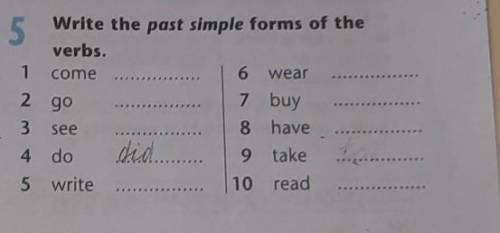 5 Write the past simple forms of the
verbs.
1 come ................
2 go ................
3 see ................
4 do did..........
5 write ................
6 wear ................
7 buy ................
8 have ................
9 take ................
10 read ................